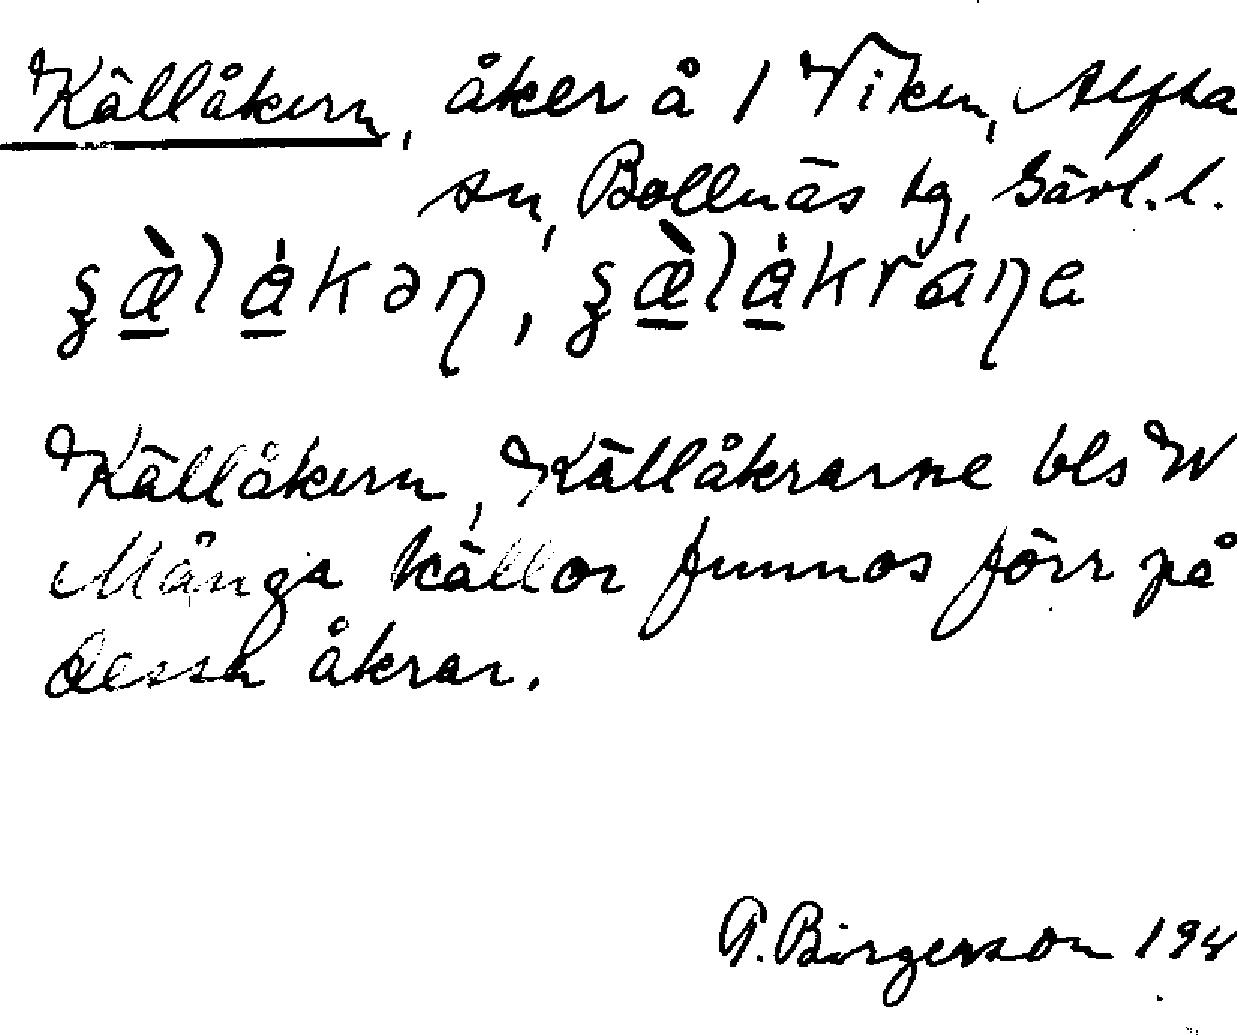 Källåkern, åker å 1 Viken, Alfta
sn, Bollnäs tg, Gävl. l.
Källåkern, Källåkrarne bls W
Många källor funnos förr på
dessa åkrar.
Birgersson